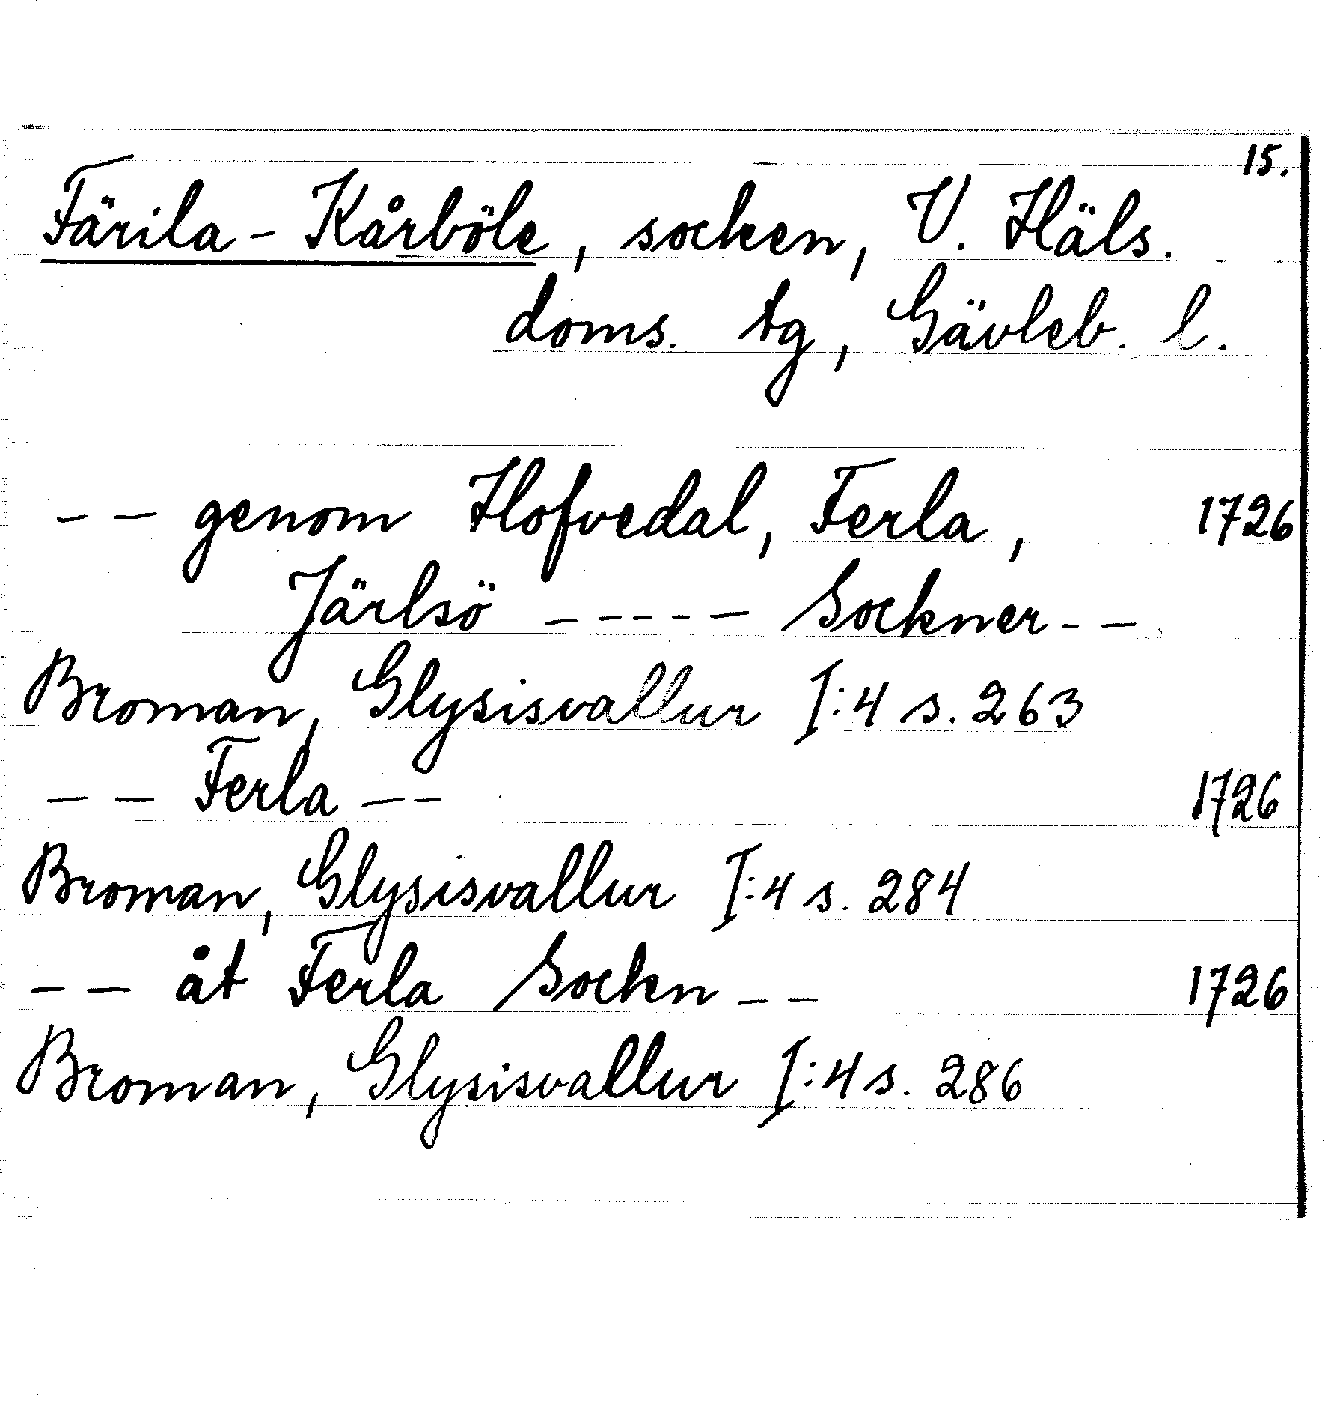 15.
Färila - Kårböle, socken, V. Häls.
doms. tg, Gävleb. l.
-- genom Hofvedal, Ferla, 1726
Järlsö ----- Sockner--
Broman, Glysisvallur I:4 s. 263
-- Ferla -- 1726
Broman, Glysisvallur I:4 s. 284
-- åt Ferla Sockn -- 1726
Broman, Glysisvallur I:4 s. 286